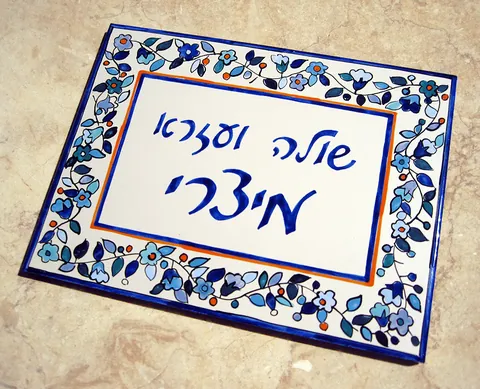 שולה ועזרא
מיצרי